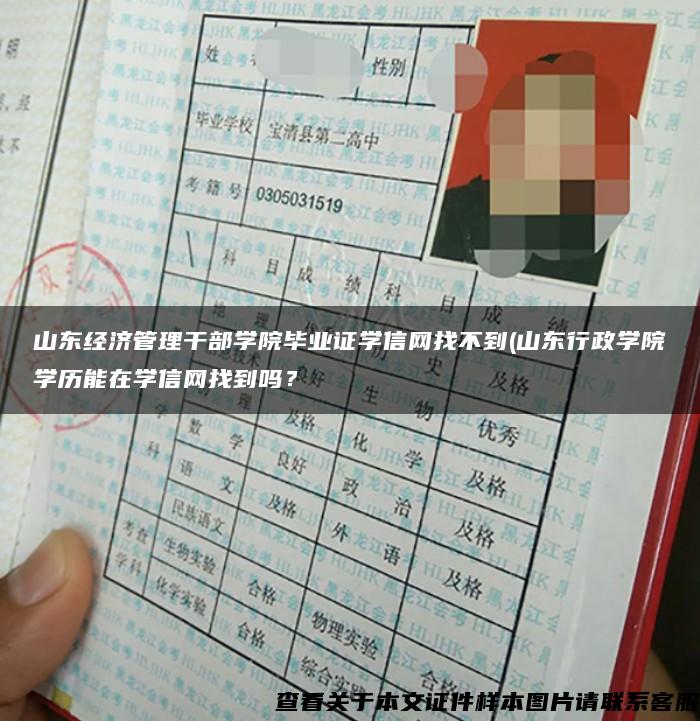 明
姓
性别
毕业学校 宝清县第二高中
考籍号 0305031519
科目 成绩 科目 成绩
山东经济管理干部学院毕业证学信网找不到(山东行政学院
学历能在学信网找到吗？
及格
良好 生物 优秀
物理 及格 化学 及格
数学 良好 政治 及格
语文 及格 外语 及格
民族语文
考查 生物实验 合格 物理实验 合格
学科 化学实验 合格 综合实
查看关于本文证件样本图片请联系客服